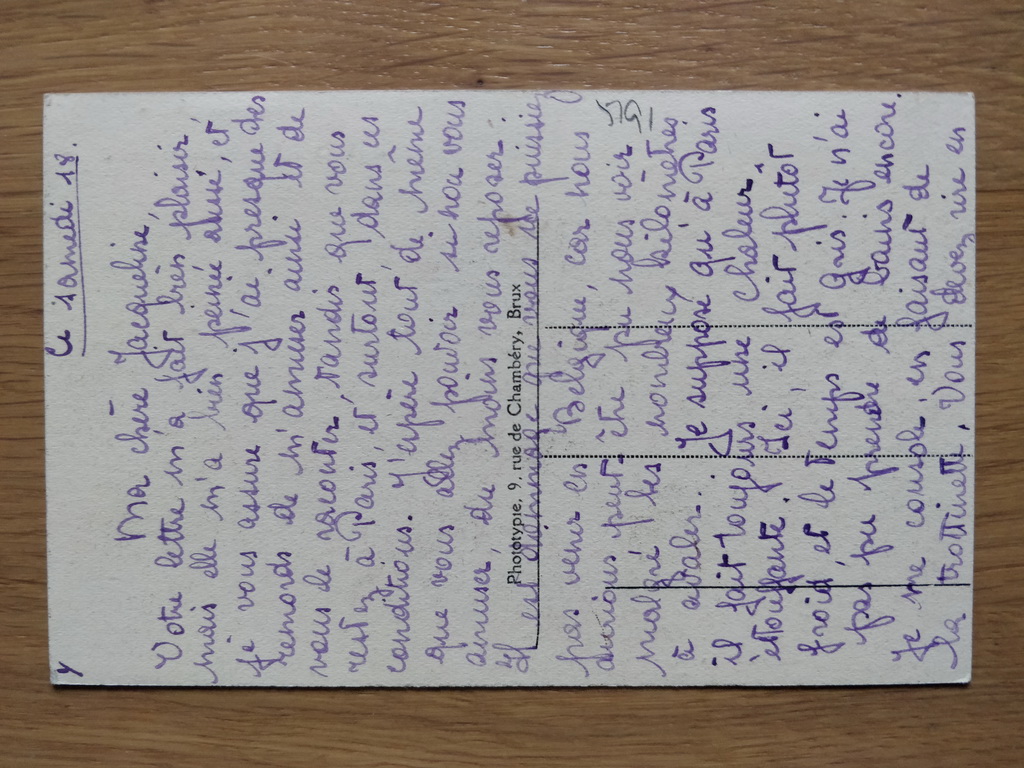 Ce Samedi 18.
Ma chère Jacqueline,
Votre lettre m'a fait très plaisir,
mais elle m'a bien peiné aussi, et
je vous assure que j'ai presque des
remords de m'amuser ainsi et de
vous le raconter, tandis que vous
restez à Paris, et surtout, dans ces
conditions. J'espère tout de même
que vous allez pouvoir si non vous
amuser, du moins vous reposer.
Il est dommage que vous ne puissiez
Phototypie, 9, rue de Chambéry, Brux
pas venir en Belgique, car nous
aurions peut-être pu nous voir
malgré les nombreux kilomètres
à avaler... Je suppose qu'à Paris
il fait toujours une chaleur
étouffante. Ici, il fait plutôt
froid, et le temps est gris. Je n'ai
pas pu prendre de bains encore.
Je me console en faisant de
la trottinette. Vous devez rire en